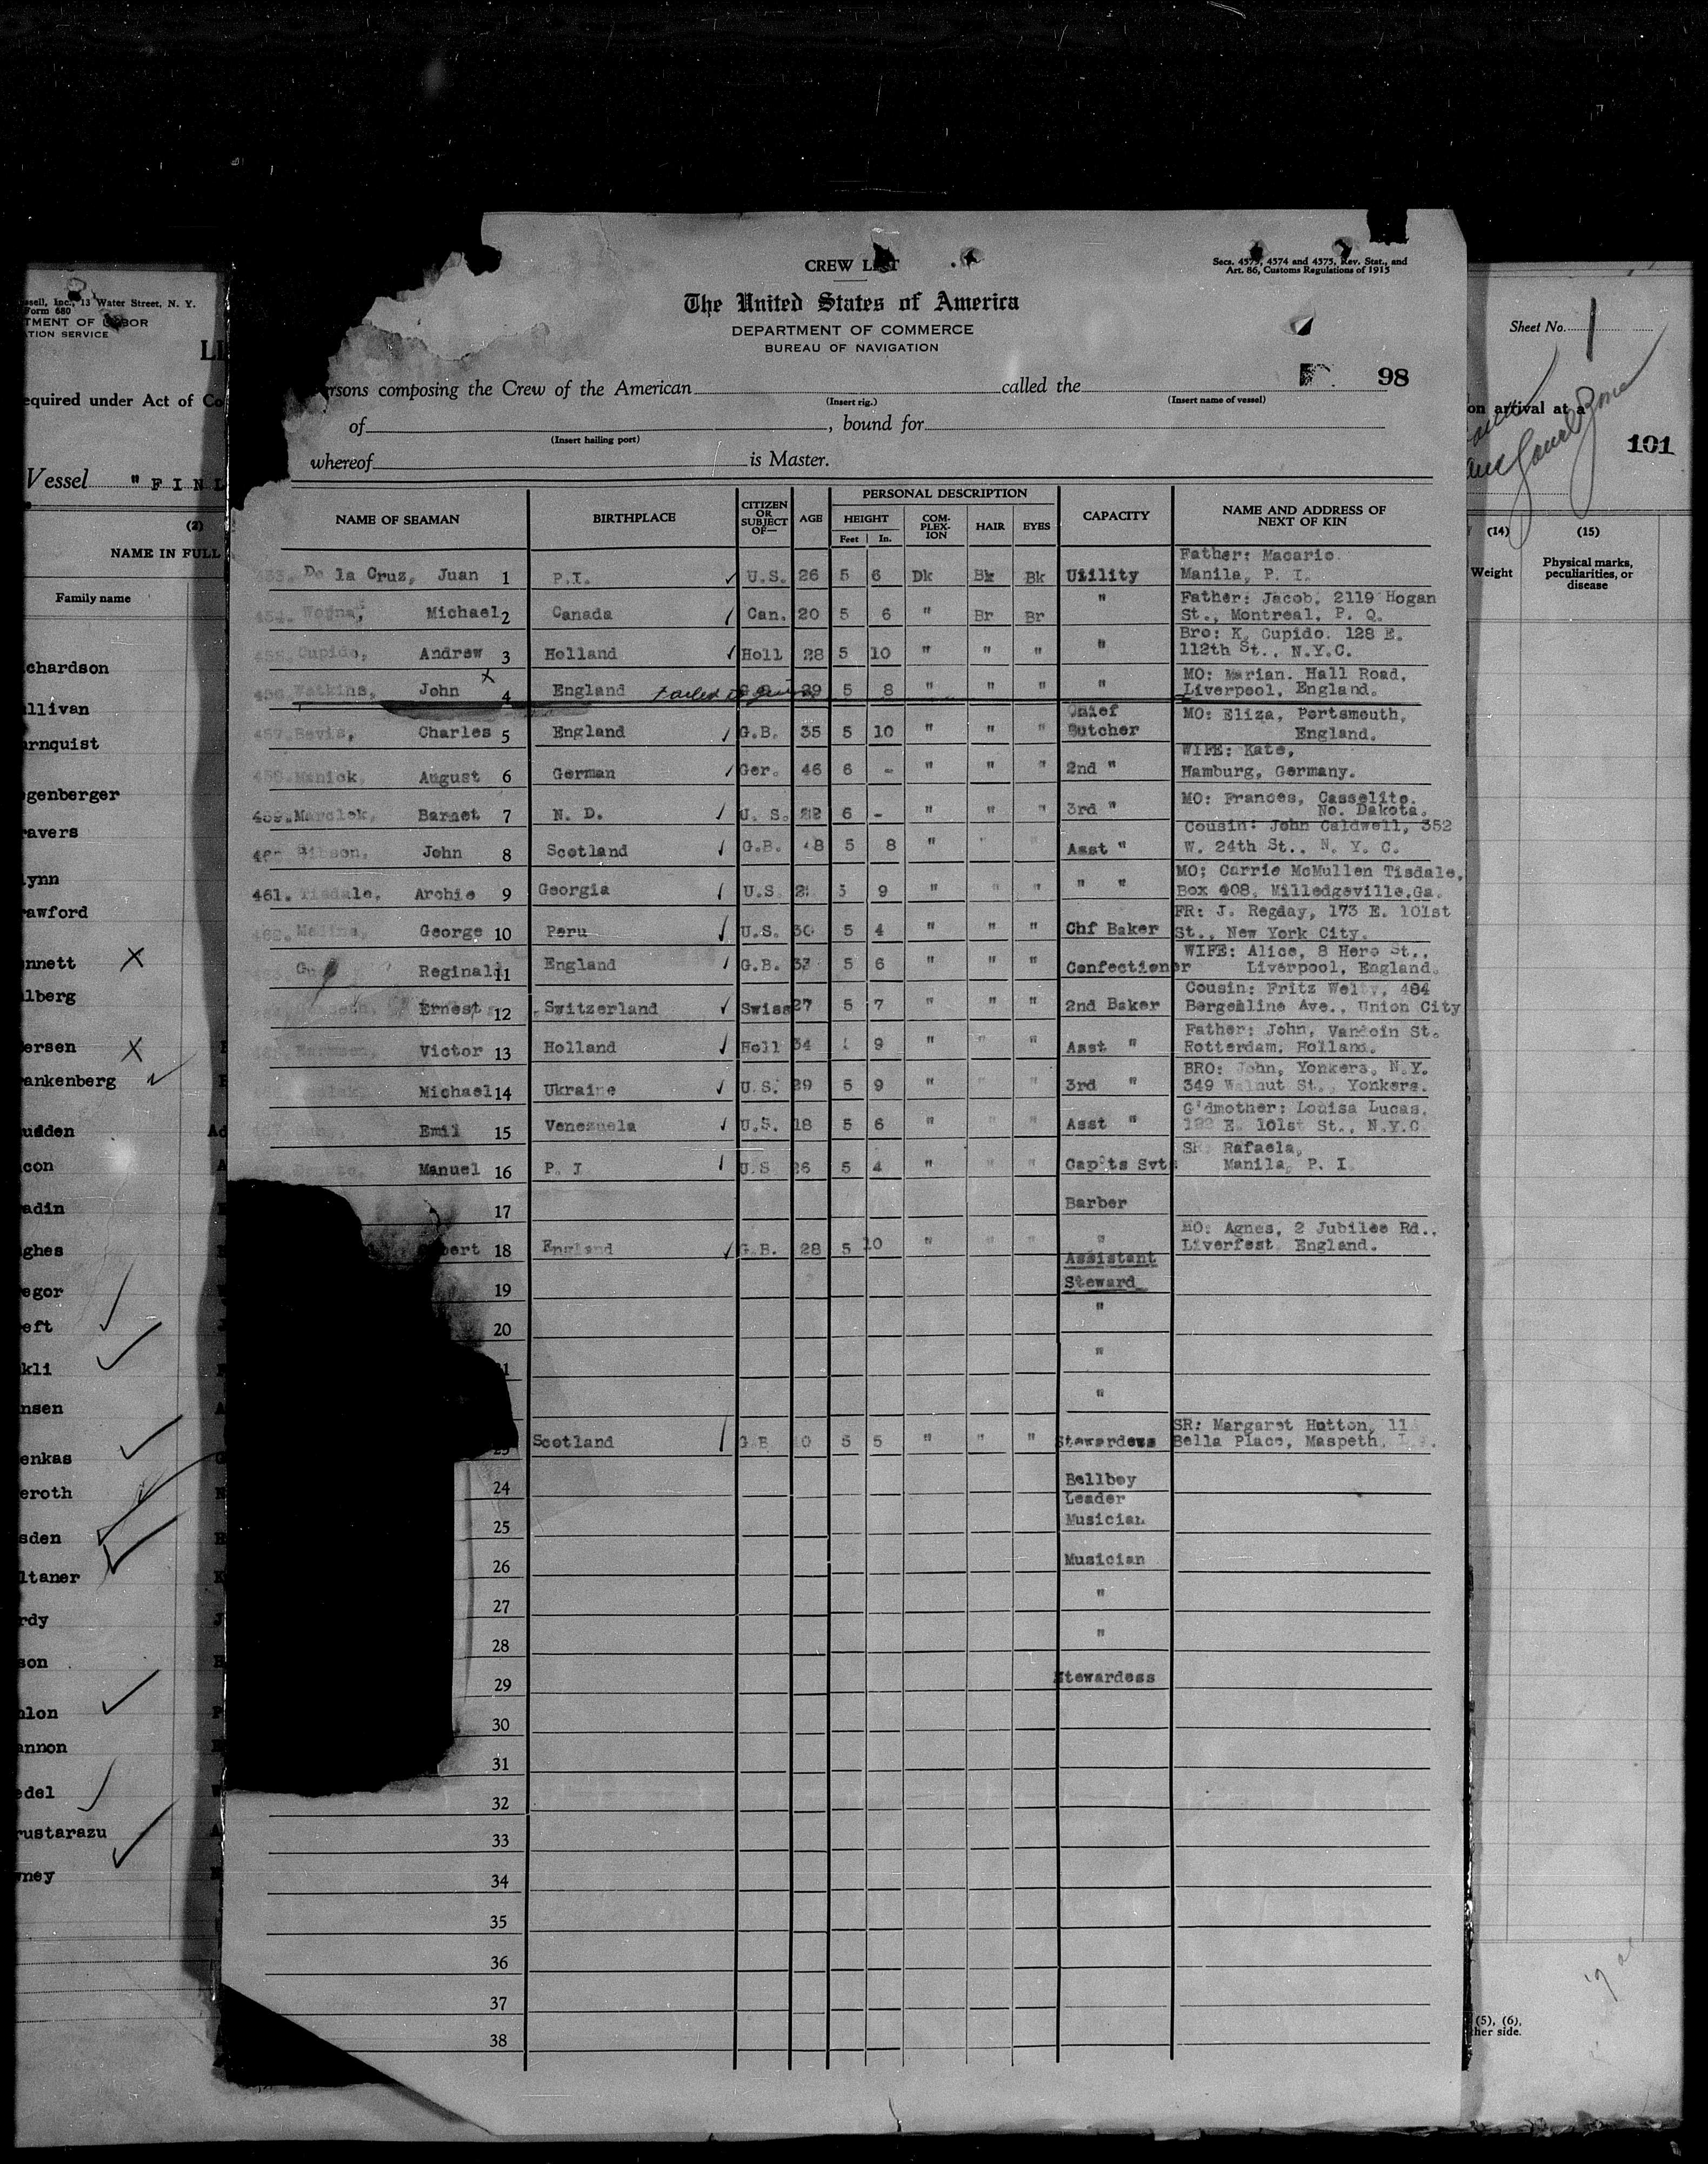 CREW LIST
Secs. 4573, 4574 and 4575, Rev. Stat., and
Art. 86, Customs Regulations of 1915
The United States of America
DEPARTMENT OF COMMERCE
BUREAU OF NAVIGATION
98
rsons composing the Crew of the American called the
(Insert rig.) (Insert name of vessel)
of , bound for
(Insert hailing port)
whereof is Master.
NAME OF SEAMAN BIRTHPLACE CITIZEN OR SUBJECT OF— AGE PERSONAL DESCRIPTION CAPACITY NAME AND ADDRESS OF NEXT OF KIN
HEIGHT COM-PLEX-ION HAIR EYES
Feet In.
Father: Macario
De la Cruz, Juan 1 P.I. ✓ U.S. 26 5 6 Dk Bk Bk Utility Manila, P. I.
Father: Jacob, 2119 Hogan
Michael 2 Canada Can. 20 5 6 " Br Br " St., Montreal, P. Q.
Bro: K. Cupido. 128 E.
Cupido, Andrew 3 Holland ✓ Holl 28 5 10 " " " " 112th St., N.Y.C.
MO: Marian. Hall Road,
Watkins, John X 4 England Failed to 29 5 8 " " " " Liverpool, England.
Chief MO: Eliza, Portsmouth,
457. Bevis, Charles 5 England ✓ G.B. 35 5 10 " " " Butcher England.
WIFE: Kate,
August 6 German ✓ Ger. 46 6 - " " " 2nd " Hamburg, Germany.
MO: Frances, Casselito.
459. Barnet 7 N. D. ✓ U. S. 22 6 - " " " 3rd " No. Dakota.
Cousin: John Caldwell, 352
John 8 Scotland ✓ G.B. 5 8 " " " Asst " W. 24th St., N. Y. C.
MO: Carrie McMullen Tisdale,
461. Tisdale, Archie 9 Georgia ✓ U.S. 5 9 " " " " " Box 408, Milledgeville, Ga.
FR: J. Regday, 173 E. 101st
George 10 Peru ✓ U.S. 30 5 4 " " " Chf Baker St., New York City.
WIFE: Alice, 8 Hero St.,
Reginald 11 England ✓ G.B. 33 5 6 " " " Confectioner Liverpool, England.
Cousin: Fritz Welty, 484
Ernest 12 Switzerland ✓ Swiss 27 5 7 " " " 2nd Baker Bergenline Ave., Union City
Father: John, Vandoin St.
Victor 13 Holland ✓ Holl 34 9 " " " Asst " Rotterdam, Holland.
BRO: John, Yonkers, N.Y.
Michael 14 Ukraine ✓ U.S. 29 5 9 " " " 3rd " 349 Walnut St., Yonkers.
G'dmother: Louisa Lucas,
Emil 15 Venezuela ✓ U.S. 18 5 6 " " " Asst " E. 101st St., N.Y.C
SR: Rafaela,
Manuel 16 P. I ✓ U.S 26 5 4 " " " Cap'ts Svt: Manila, P. I
17 Barber
MO: Agnes, 2 Jubilee Rd.,
bert 18 England ✓ G.B. 28 5 10 " " " " Liverfest England.
Assistant
19 Steward
20 "
21 "
"
SR: Margaret Hutton, 11
23 Scotland ✓ G.B 5 5 " " " Stewardess Bella Place, Maspeth,
24 Bellboy
Leader
25 Musician
26 Musician
27 "
28 "
29 Stewardess
30
31
32
33
34
35
36
37
38
ssell, Inc., 13 Water Street, N. Y.
Form 680
TMENT OF LABOR
ATION SERVICE
LI
equired under Act of Co
Vessel "FINL
(2)
NAME IN FULL
Family name
chardson
llivan
rnquist
genberger
avers
ynn
awford
nnett X
lberg
ersen X
ankenberg ✓
udden Ad
con A
adin
ghes
egor ✓
eft ✓
kli
nsen
enkas ✓
eroth
sden ✓
ltaner
rdy J
son
nlon ✓
annon
edel ✓
rustarazu ✓
wney
Sheet No. 1
on arrival at a
101
(14) (15)
Weight Physical marks, peculiarities, or disease
(5), (6),
ther side.